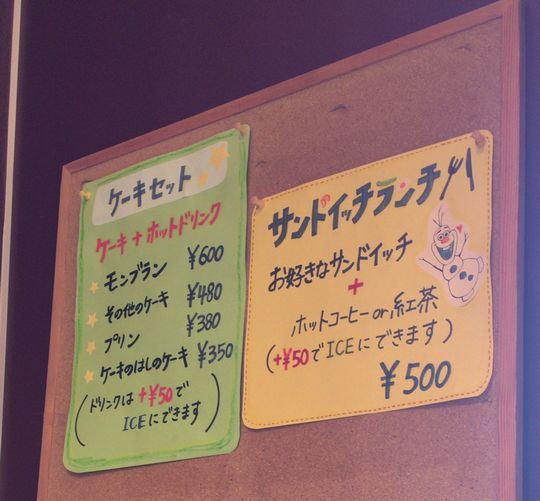 ケーキセット
ケーキ + ホットドリンク
モンブラン ¥600
その他のケーキ ¥480
プリン ¥380
ケーキのはしのケーキ ¥350
(ドリンクは +¥50で
ICEにできます)
サンドイッチランチ
お好きなサンドイッチ
+
ホットコーヒー or 紅茶
(+¥50でICEにできます)
¥500